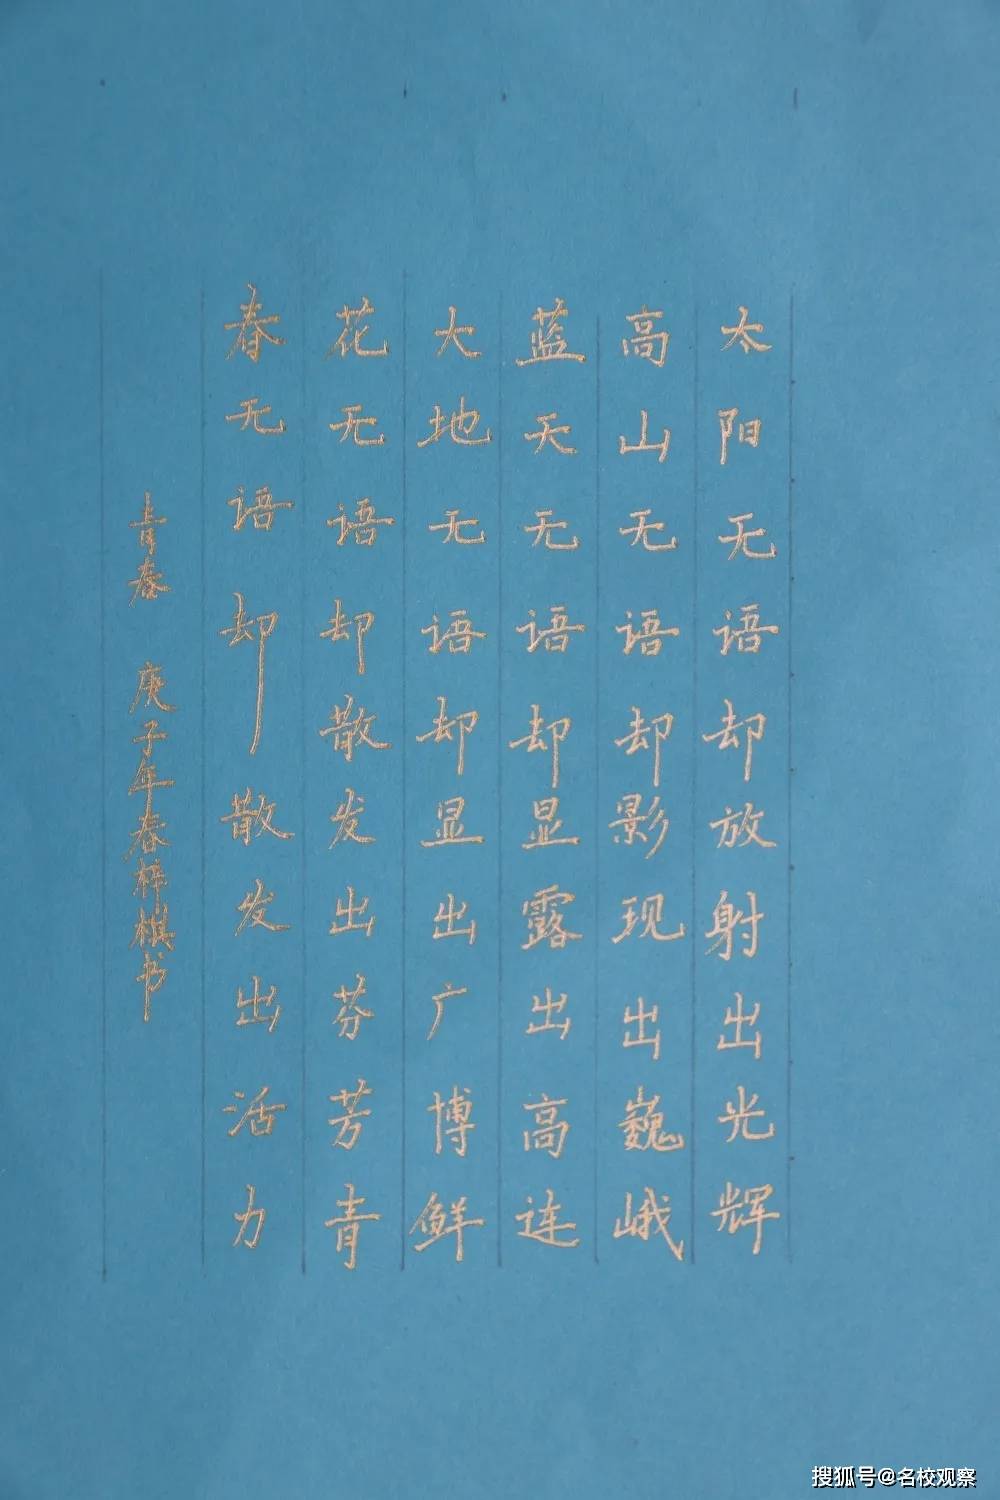 太阳无语却放射出光辉
高山无语却影现出巍峨
蓝天无语却显露出高连
大地无语却显出广博鲜
花无语却散发出芬芳青
春无语却散发出活力
青春 庚子年春梓棋书
搜狐号@名校观察